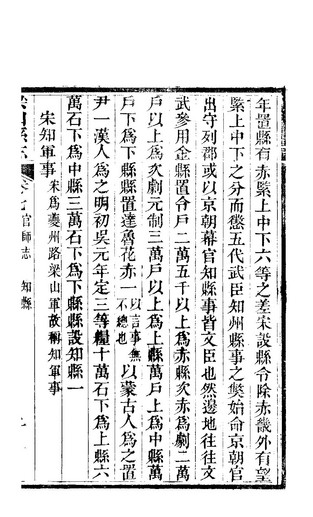 年置縣有赤緊上中下六等之差宋設縣令除赤畿外有望
緊上中下之分而懲五代武臣知州縣事之弊始命京朝官
出守列郡或以京朝幕官知縣事皆文臣也然邊地往往文
武參用金縣置令戶二萬五千以上爲赤縣次赤爲劇二萬
戶以上爲次劇元制三萬戶以上爲上縣萬戶上爲中縣萬
戶下爲下縣縣置達魯花赤一以言事無不總也以蒙古人爲之置
尹一漢人爲之明初吳元年定三等糧十萬石下爲上縣六
萬石下爲中縣三萬石下爲下縣縣設知縣一
宋知軍事宋爲夔州路梁山軍故稱知軍事
梁山縣志
卷七官師志 知縣